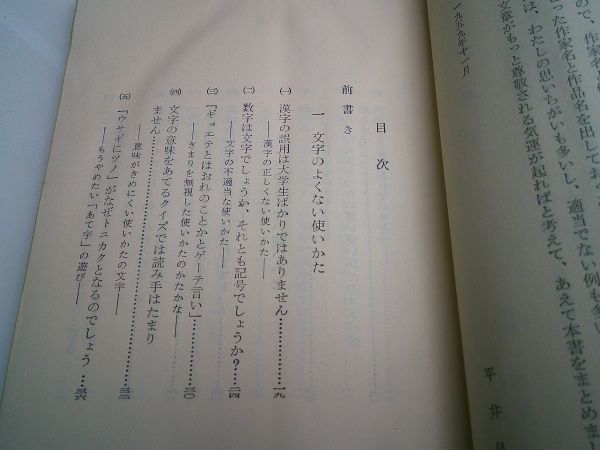 ので、作家名と
った作家名と作品名を出しておく
は、わたしの思いちがいも多いし、適当でない例も多い
文章がもっと尊敬される気運が起ればと考えて、あえて本書をまとめまし
一九五九年十一月
平井
目次
前書き
一 文字のよくない使いかた
㈠ 漢字の誤用は大学生ばかりではありません…………一九
――漢字の正しくない使いかた――
㈡ 数字は文字でしょうか、それとも記号でしょうか?………二四
――文字の不適当な使いかた――
㈢ 「ギョエテとはおれのことかとゲーテ言い」…………三〇
――きまりを無視した使いかたのかたかな――
㈣ 文字の意味をあてるクイズでは読み手はたまり
ません…………三三
――意味がきめにくい使いかたの文字――
㈤ 「ウサギにツノ」がなぜトニカクとなるのでしょう…三六
――もうやめたい「あて字」の遊び――